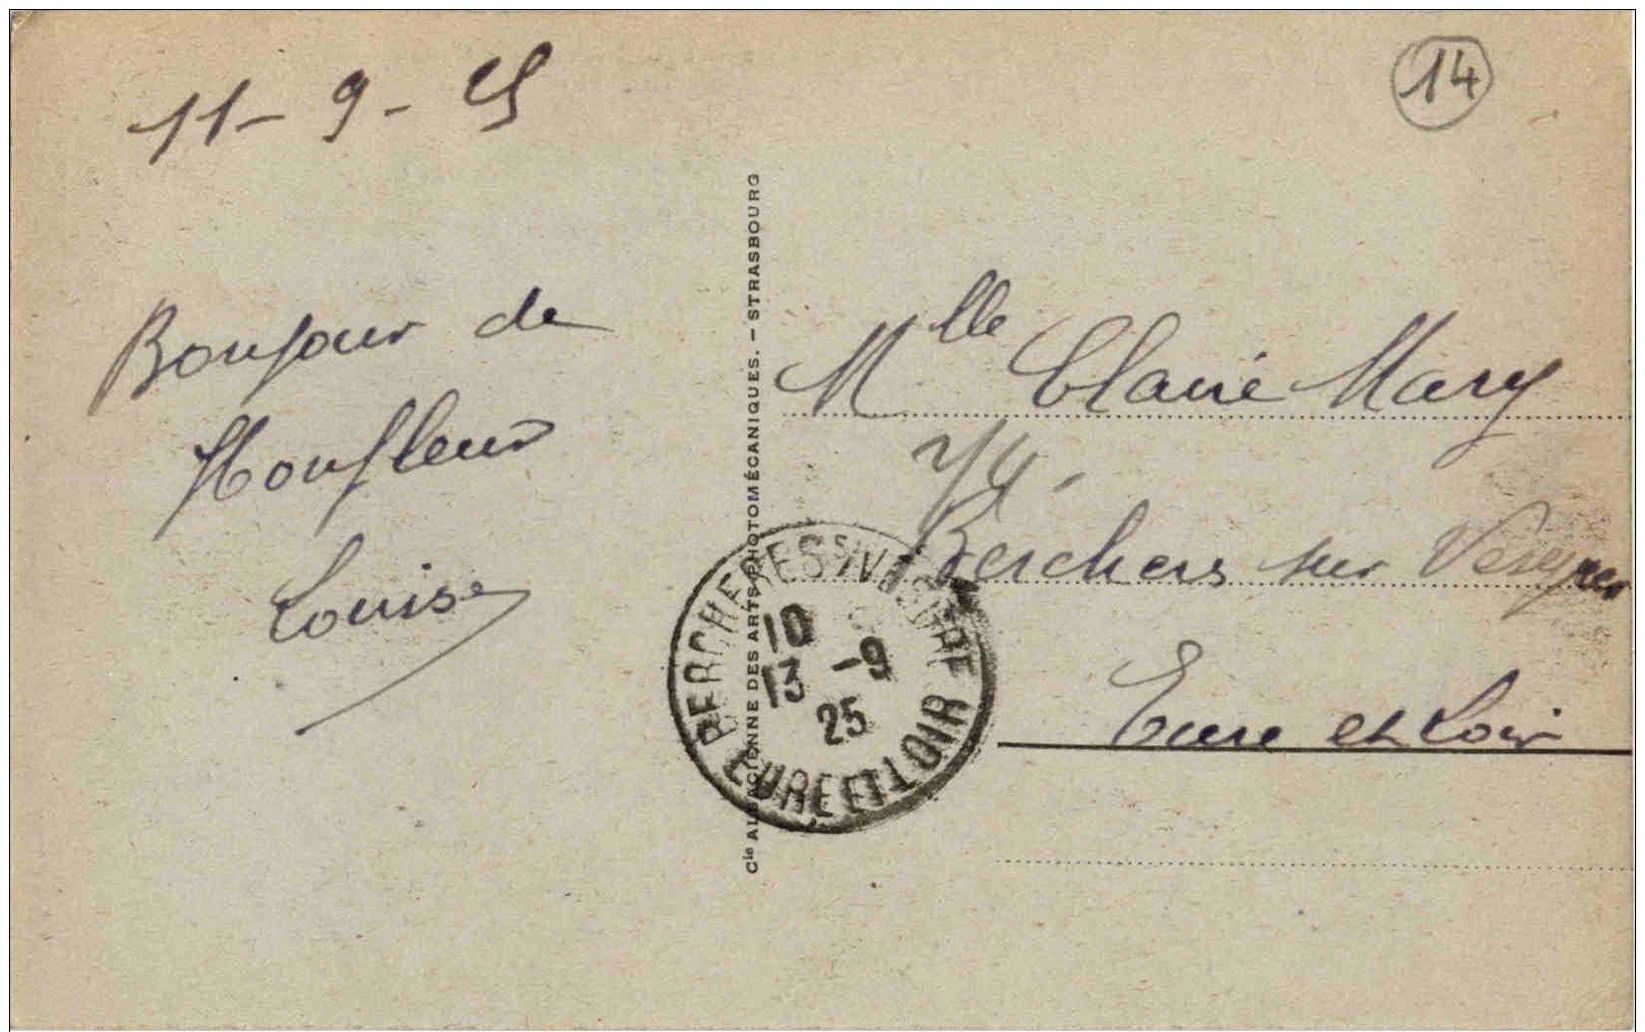 11 - 9 - 25
14
Bonjour de
Honfleur
Louise
Cie ALSACIENNE DES ARTS PHOTOMÉCANIQUES. — STRASBOURG
Mlle Claire Mary
Berchers sur Vesgres
Eure et Loir
BERCHERES S/ VESGRE
10
13 -9
25
EURE ET LOIR